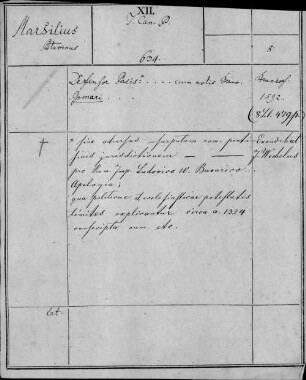 XII.
Marsilius
Patavinus
J. Can. P.
5
634.
Defensor Pacis . . . . cum notis Franc.
Gomari . . . .
Francof.
1592.
(8
† "sive adversus
jurisdictionem
pro Imp. Ludovico IV. Bavarico
Apologia;
qua politicae et ecclesiasticae potestatis
limites explicantur circa a. 1324
conscripta cum etc.
Excudebat
J. Wechelus
Lat.